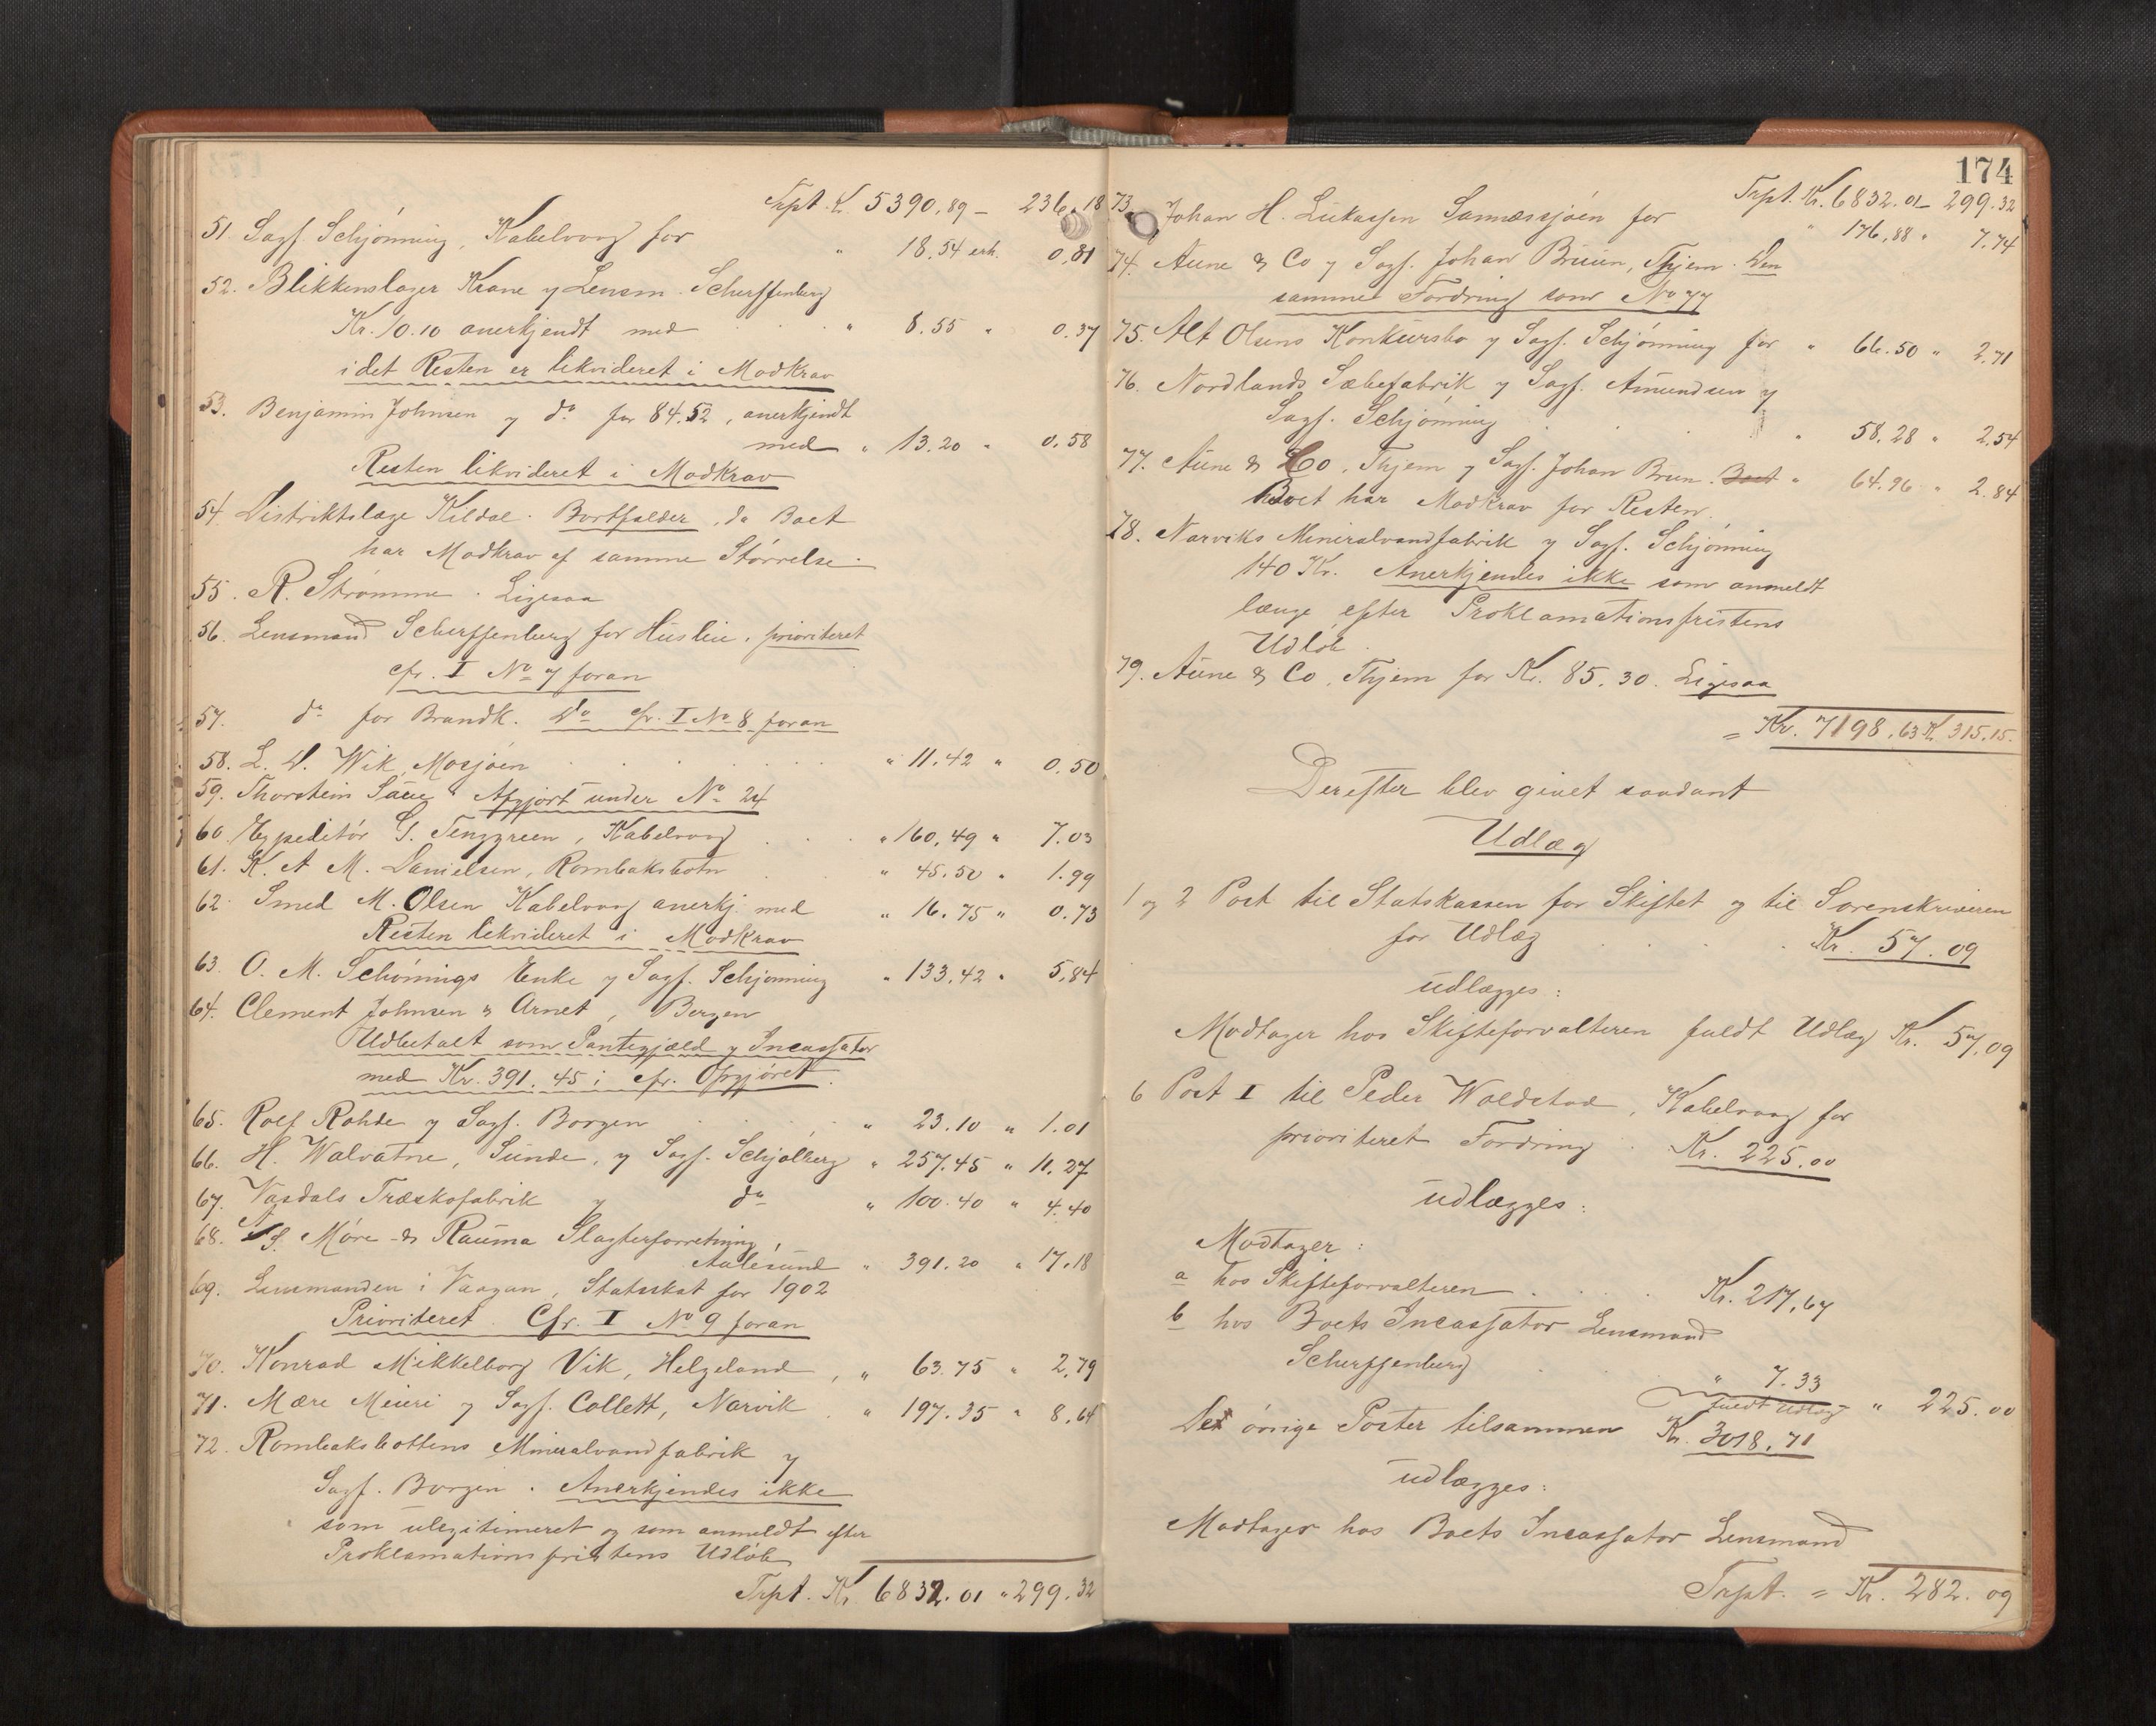 Trpt. K. 5390.89 – 236.18
51. Sagf. Schjønning, Kabelvaag for " 18.54 erh. 0.81
52. Blikkenslager Krane v Lensm. Scherffenberg
Kr. 10.10 anerkjendt med . . . " 8.55 " 0.37
idet Resten er likvideret i Modkrav
53. Benjamin Johnsen v do for 84.52, anerkjendt
med " 13.20 " 0.58
Resten likvideret i Modkrav
54. Distriktslæge Kildal. Bortfalder, da Boet
har Modkrav af samme Størrelse.
55. R. Strømme. Ligesaa
56. Lensmand Scherffenberg for Husleie, prioriteret
cfr. I No 7 foran
57. do for Brandk. Do cfr. I No 8 foran
58. L. D. Wik, Mosjøen . . . " 11.42 " 0.50
59. Thorstein Saue. Afgjort under No 24
60. Expeditør G. Tenggreen, Kabelvaag . . . " 160.49 " 7.03
61. K. A M. Danielsen, Rombaksbotn . . " 45.50 " 1.99
62. Smed M. Olsen Kabelvaag anerkj. med " 16.75 " 0.73
Resten likvideret i Modkrav
63. O. M. Schønnings Enke v Sagf. Schjønning " 133.42 " 5.84
64. Clement Johnsen & Arnet, Bergen
Udbetalt som Pantegjæld v Incassator
med Kr. 391.45; cfr. Opgjøret.
65. Rolf Rohde v Sagf. Borgen . . . " 23.10 " 1.01
66. H. Walvatne, Sunde, v Sagf. Schjølberg " 257.45 " 11.27
67. Vasdals Træskofabrik v do " 100.40 " 4.40
68. A/S. Møre & Rauma Slagterforretning,
Aalesund " 391.20 " 17.18
69. Lensmanden i Vaagan, Statsskat for 1902
Prioriteret. Cfr. I No 9 foran
70. Konrad Mikkelborg Vik, Helgeland, " 63.75 " 2.79
71. Mære Meieri v Sagf. Collett, Narvik . " 197.35 " 8.64
72. Rombaksbottens Mineralvandfabrik v
Sagf. Borgen. Anerkjendes ikke
som ulegitimeret og som anmeldt efter
Proklamationsfristens Udløb
Trpt. Kr 6832.01 " 299.32
174
Trpt. Kr. 6832.01 – 299.32
73. Johan H. Lukassen Sannæssjøen for " 176.88 " 7.74
74. Aune & Co v Sagf. Johan Bruun, Thjem. Den
samme Fordring som No 77
75. Alt Olsens Konkursbo v Sagf. Schjønning for " 66.50 " 2.71
76. Nordlands Sæbefabrik v Sagf. Amundsen v
Sagf. Schjønning . . . " 58.28 " 2.54
77. Aune & Co, Thjem v Sagf. Johan Brun. Boet " 64.96 " 2.84
Boet har Modkrav for Resten.
78. Narviks Mineralvandfabrik v Sagf. Schjønning
140 Kr. Anerkjendes ikke som anmeldt
længe efter Proklamationsfristens
Udløb.
79. Aune & Co, Thjem for Kr. 85.30. Ligesaa
= Kr. 7198.63 K. 315.15.
Derefter blev givet saadant
Udlæg
1 og 2 Post til Statskassen for Skiftet og til Sorenskriveren
for Udlæg . . . Kr. 57.09
udlægges:
Modtager hos Skifteforvalteren fuldt Udlæg Kr. 57.09
6 Post I til Peder Woldstad, Kabelvaag for
prioriteret Fordring . Kr. 225.00
udlægges:
Modtager:
a hos Skifteforvalteren . . . . Kr. 217,67
b hos Boets Incassator Lensmand
Scherffenberg . " 7.33
fuldt Udlæg " 225.00
De øvrige Poster tilsammen Kr. 3018.71
udlægges:
Modtager hos Boets Incassator Lensmand
Trpt. = Kr. 282.09